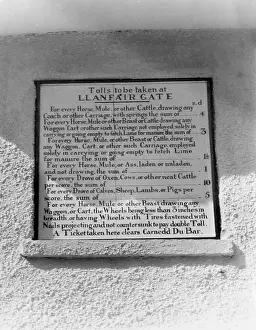 Tolls to be taken at
LLANFAIR GATE
s. d
For every Horse, Mule, or other Cattle, drawing any
Coach or other Carriage, with springs the sum of 4
For every Horse, Mule or other Beast or Cattle drawing any
Waggon, Cart or other such Carriage not employed solely in
carrying or going empty to fetch Lime for manure the sum of 3
For every Horse, Mule, or other Beast or Cattle, drawing
any Waggon, Cart, or other such Carriage, employed
solely in carrying or going empty to fetch Lime
for manure the sum of
For every Horse, Mule or Ass, laden or unladen,
and not drawing, the sum of 1
For every Drove of Oxen, Cows, or other neat Cattle
per score, the sum of 10
For every Drove of Calves, Sheep, Lambs, or Pigs per
score, the sum of 5
For every Horse, Mule or other Beast drawing any
Waggon, or Cart, the Wheels being less than 3 inches in
breadth, or having Wheels with Tires fastened with
Nails projecting and not countersunk to pay double Toll.
A Ticket taken here clears Carnedd Du Bar.